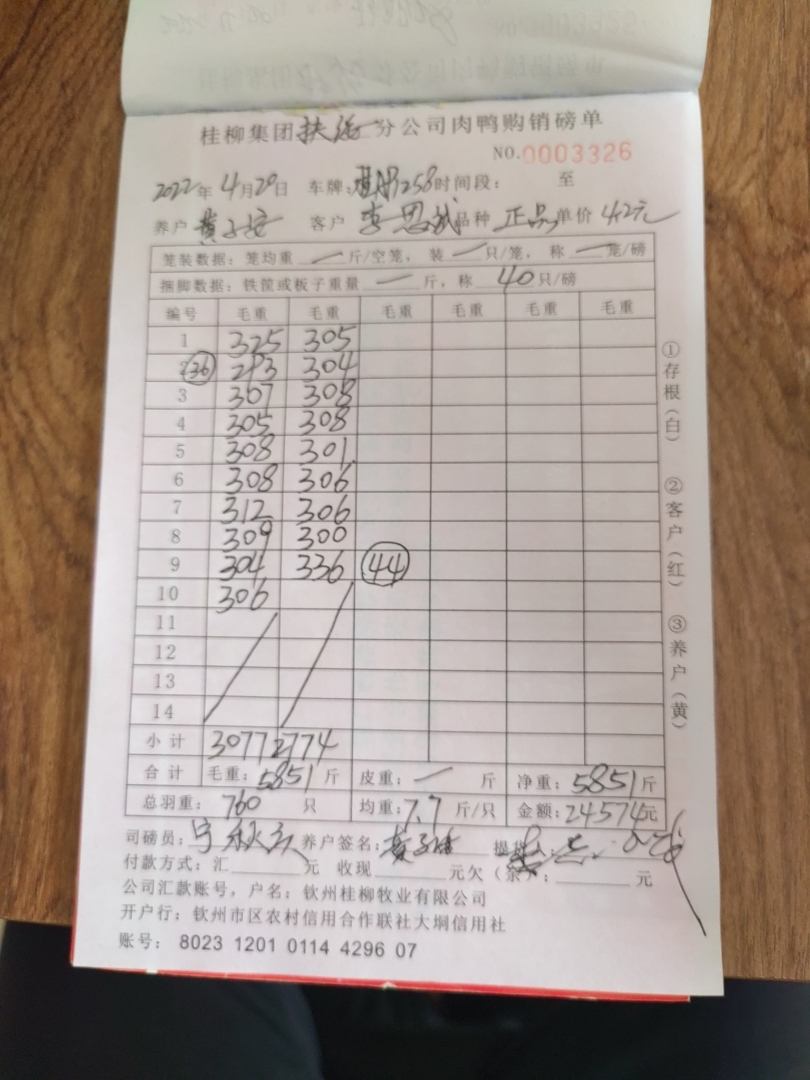 桂柳集团扶绥分公司肉鸭购销磅单
NO.0003326
2022年4月20日 车牌: 258时间段: 至
养户 黄 客户 李思 品种 正品 单价 4.2元
笼装数据: 笼均重 一 斤/空笼, 装 一 只/笼, 称 一 笼/磅
捆脚数据: 铁筐或板子重量 一 斤, 称 40 只/磅
编号 毛重 毛重 毛重 毛重 毛重 毛重
1 325 305
2 36 293 304
3 307 308
4 305 308
5 308 301
6 308 306
7 312 306
8 309 300
9 304 336 44
10 306
11
12
13
14
小计 3077 2774
合计 毛重: 5851 斤 皮重: 一 斤 净重: 5851 斤
总羽重: 760 只 均重: 7.7 斤/只 金额: 24574元
司磅员: 养户签名: 黄
付款方式: 汇 元 收现 元欠(余): 元
公司汇款账号, 户名: 钦州桂柳牧业有限公司
开户行: 钦州市区农村信用合作联社大垌信用社
账号: 8023 1201 0114 4296 07
①存根(白)
②客户(红)
③养户(黄)